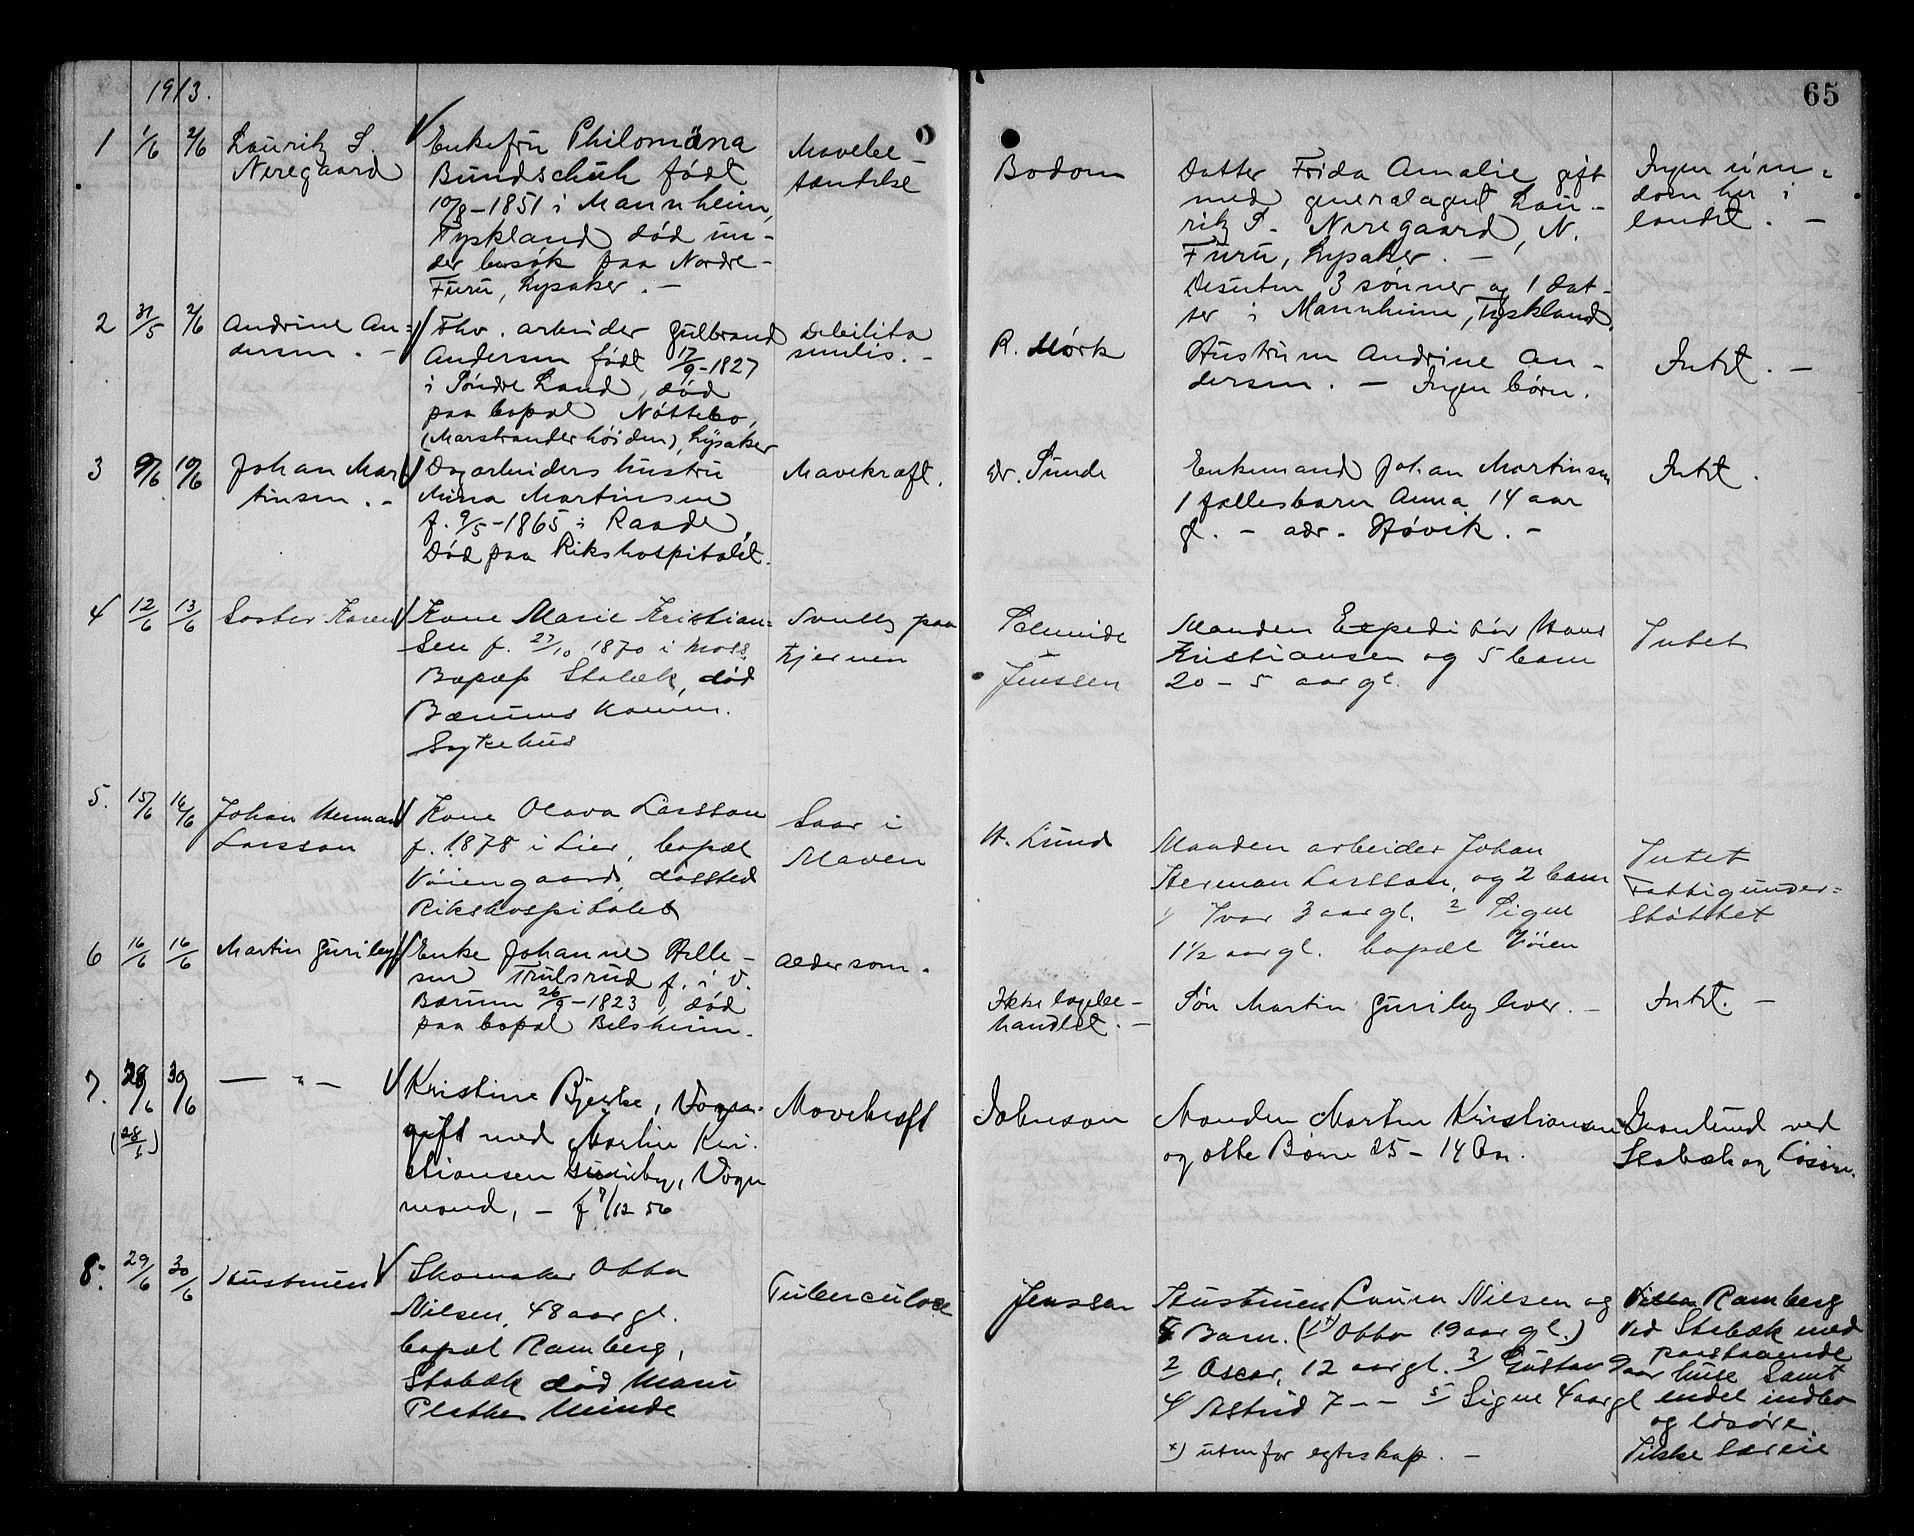 1913.
65
1 1/6 2/6 Lauritz S.
Neregaard
Enkefru Philomäna
Bundschuh født
10/8-1851 i Mannheim,
Tyskland død un-
der besøk paa Nordre-
Furu, Lysaker. -
Mavebe-
tændelse
Bodom
Datter Frida Amalie gift
med generalagent Lau-
ritz S. Neregaard, N.
Furu, Lysaker. -
Desuten 3 sønner og 1 dat-
ter i Mannheim, Tyskland.
Ingen eien-
dom her i
landet. -
2 31/5 2/6 Andrine An-
dersen. -
Fhv. arbeider Gulbrand
Andersen født 17/9-1827
i Søndre Land, død
paa bopæl Nøttebo,
(Marstranderhøiden), Lysaker
Debilita
senilis. -
R. Mørk
Hustruen Andrine An-
dersen. - Ingen børn.
Intet. -
3 9/6 10/6 Johan Mar
tinsen. -
Dagarbeiders hustru
Mina Martinsen
f. 9/5-1865 i Raade,
Død paa Rikshospitalet.
Mavekræft.
dr. Sunde
Enkemand Johan Martinsen
1 fællesbarn Anna 14 aar
gl. - adr. Høvik. -
Intet.
4 12/6 13/6 Søster Karen
Kone Marie Kristian-
sen f. 27/10 1870 i Moss
Bopæl Stabæk, død
Bærums Komm.
Sykehus
Svulst paa
hjernen
Jenssen
Manden Expeditør Hans
Kristiansen og 5 barn
20 - 5 aar gl.
Intet
5. 15/6 16/6 Johan Herman
Larsson
Kone Olava Larsson
f. 1878 i Lier, bopæl
Vøiengaard, dødssted
Rikshospitalet
Saar i
Maven
H. Lund
Manden arbeider Johan
Herman Larsson, og 2 barn
1/ Ivar 3 aar gl. 2 Signe
1 1/2 aar gl. bopæl Vøien
Intet
Fattigunder-
støttet
6 16/6 16/6 Martin Gurieby
Enke Johanne Helle-
sen Trulsrud f. i V.
Bærum 26/9-1823, død
paa bopæl Belsheim.
Alderdom.
Ikke lægebe-
handlet. -
Søn Martin Gurieby lever. -
Intet. -
7. 28/6 30/6 — " —
(28/6)
Kristine Bjerke, Vogn-
gift med Martin Kri-
stiansen Gurieby, Vogn
mand, - f 7/12 56
Mavekræft
Johnson
Manden Martin Kristiansen
og otte Børn 25 - 14 Aar.
Granlund ved
Stabæk og Løsøre.
8. 29/6 30/6 Hustruen
Skomaker Otto
Nilsen, 48 aar gl.
bopæl Ramberg,
Stabæk død Marie
Plathes Minde
Tuberculose
Jenssen
Hustruen Laura Nilsen og
5 Barn. (1 x) Otto 19 aar gl.)
2 Oscar, 12 aar gl. 3/ Gustav 9 aar
4/ Astrid 7 - - 5 Signe 4 aar gl
x) utenfor egteskap. -
Villa Ramberg
ved Stabæk med
paastaaende
huse samt
endel indbo
og løsøre.
Ikke særeie